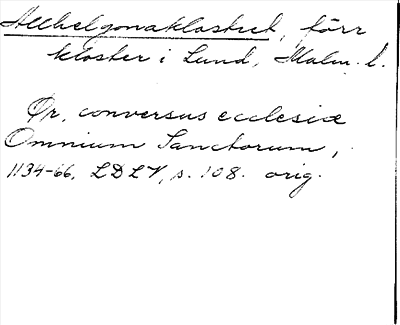 Allhelgonaklostret, förr
kloster i Lund, Malm. l.
Ør, conversus ecclesiæ
Omnium Sanctorum,
1134-66, LDLV, s. 108. orig.